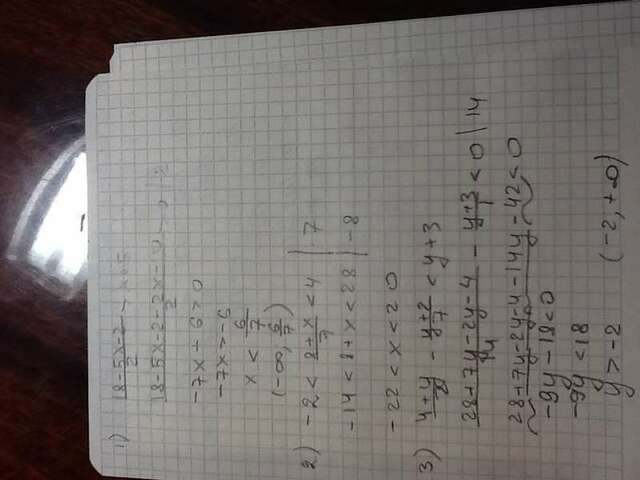 1) (18-5x-2)/2
(18-5x-2-2x-)/2
-7x + 6 > 0
-7x > -6
x < 6/7
(-∞, 6/7)
2) -2 < (8+x)/7 < 4 | 7
-14 < 8+x < 28 | -8
-22 < x < 20
3) (4+y)/2 - (y+2)/7 < y+3
(28+7y-2y-4)/14 - (y+3)/1 < 0 | 14
28+7y-2y-4-14y-42<0
-9y-18<0
-9y<18
y > -2 (-2, +∞)